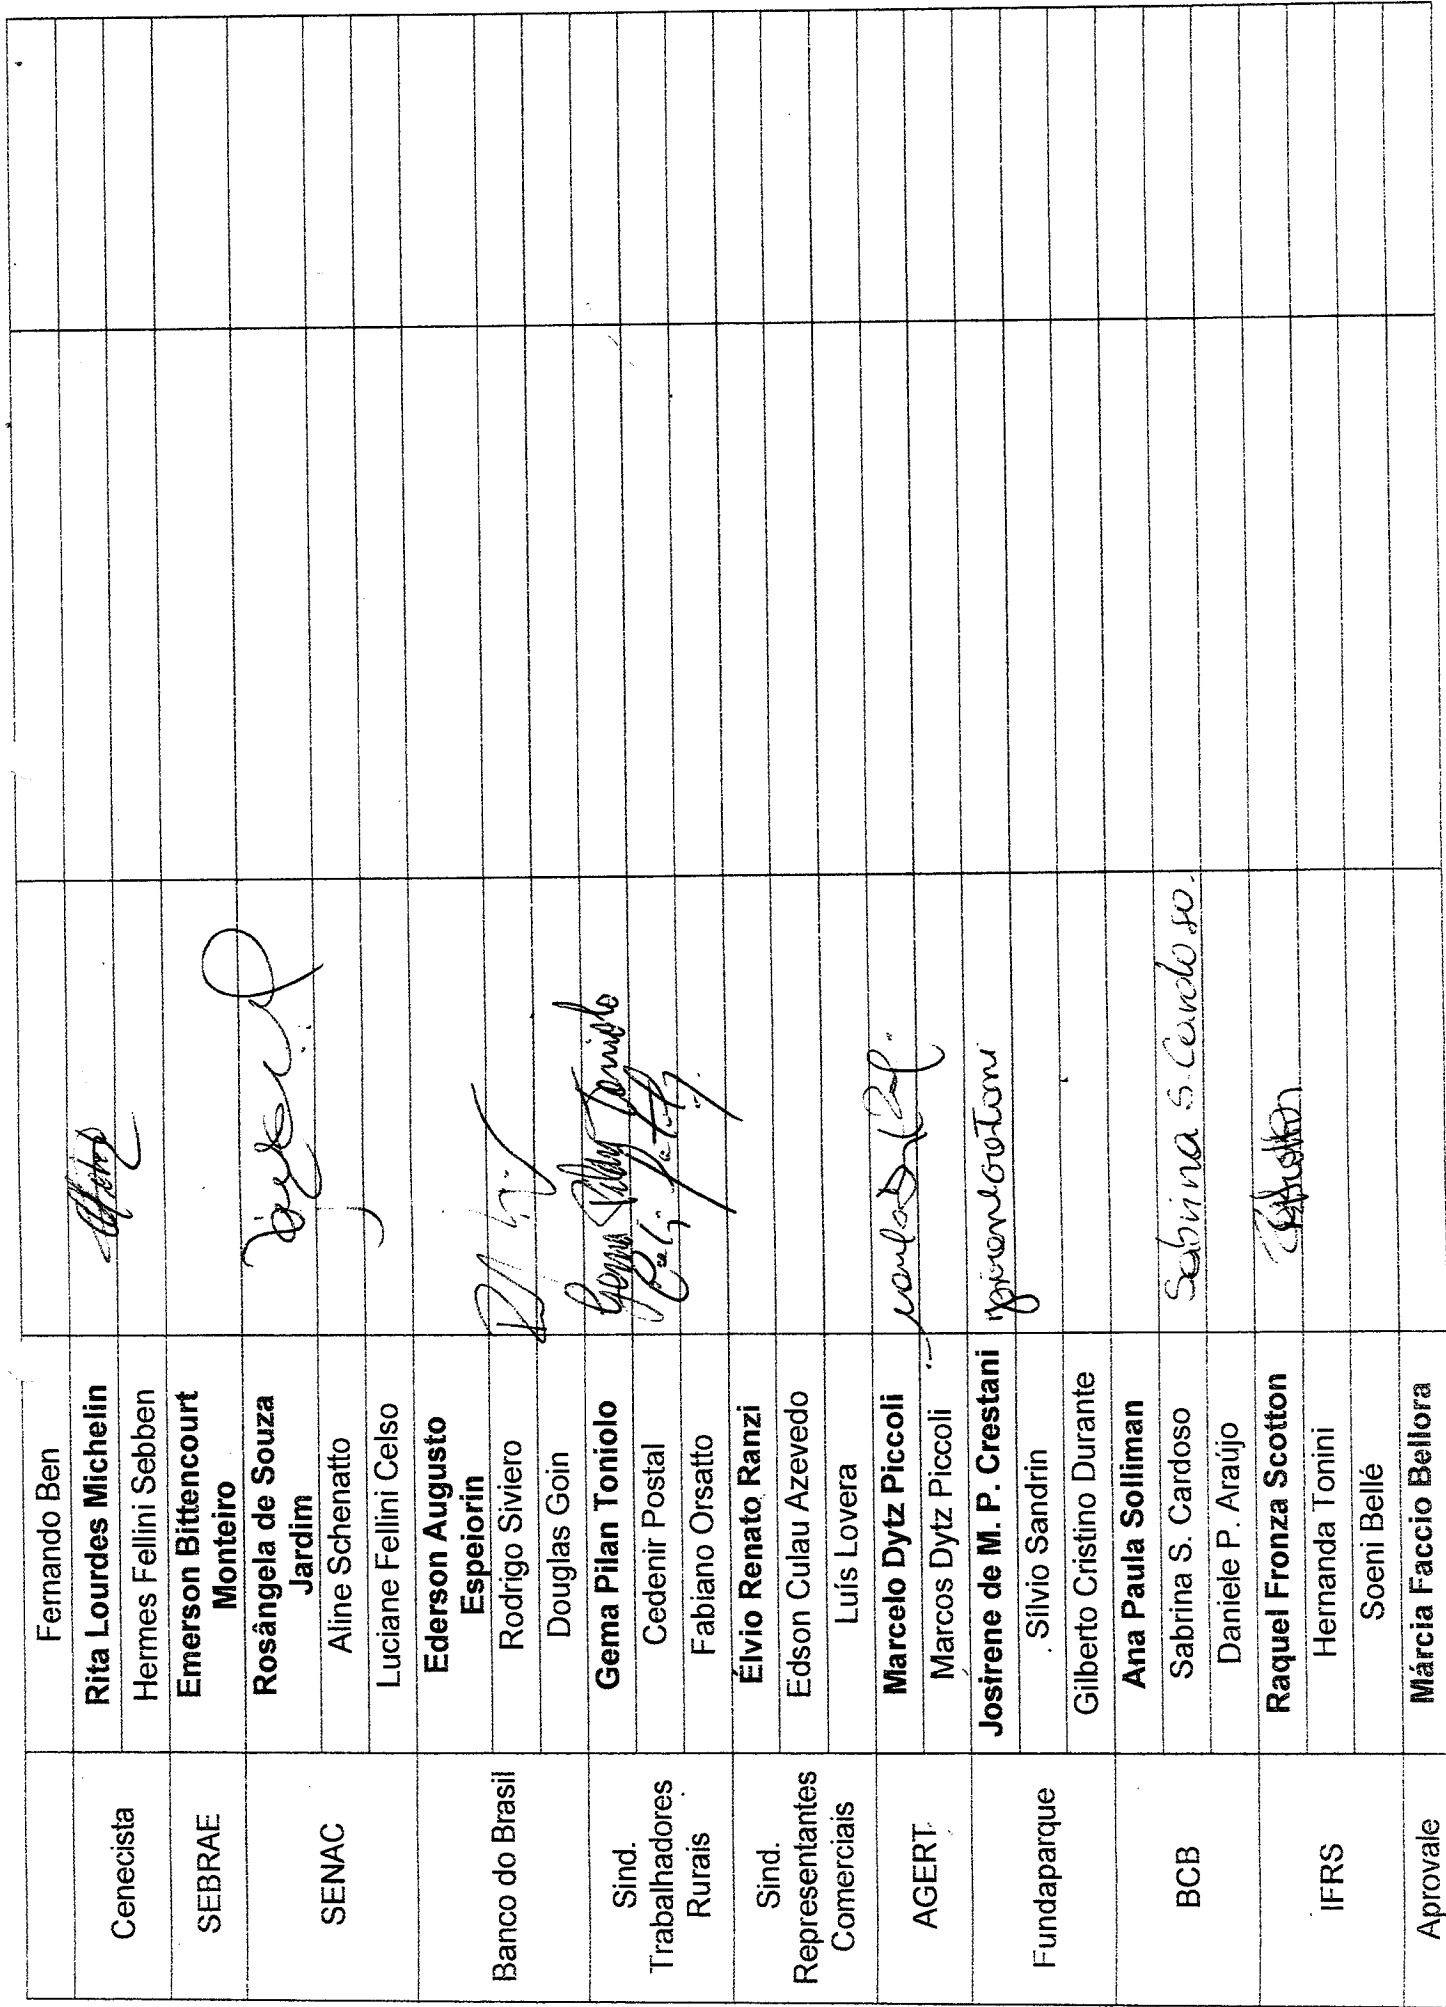 Fernando Ben
Cenecista
Rita Lourdes Michelin
Hermes Fellini Sebben
SEBRAE
Emerson Bittencourt
Monteiro
SENAC
Rosângela de Souza
Jardim
Aline Schenatto
Luciane Fellini Celso
Banco do Brasil
Ederson Augusto
Espeiorin
Rodrigo Siviero
Douglas Goin
Sind.
Trabalhadores
Rurais
Gema Pilan Toniolo
Gema Pilan Toniolo
Cedenir Postal
Fabiano Orsatto
Sind.
Representantes
Comerciais
Élvio Renato Ranzi
Edson Culau Azevedo
Luís Lovera
AGERT
Marcelo Dytz Piccoli
Marcos Dytz Piccoli
Fundaparque
Josirene de M. P. Crestani
Sílvio Sandrin
Gilberto Cristino Durante
BCB
Ana Paula Solliman
Sabrina S. Cardoso
Sabrina S. Cardoso.
Daniele P. Araújo
IFRS
Raquel Fronza Scotton
Hernanda Tonini
Soeni Bellé
Aprovale
Márcia Faccio Bellora